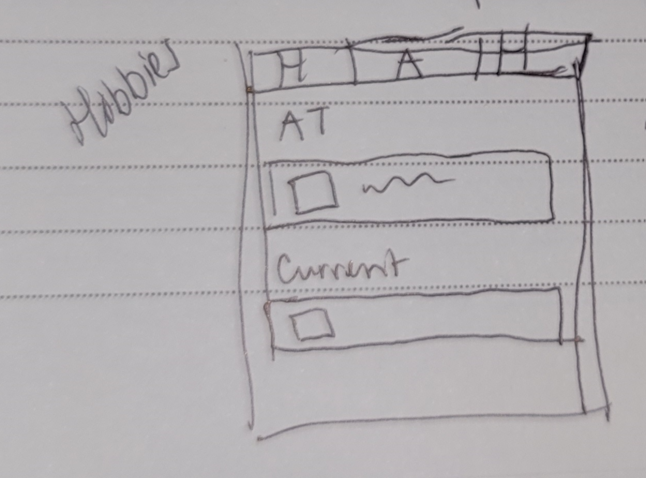 Hobbies
H A H
AT
Current